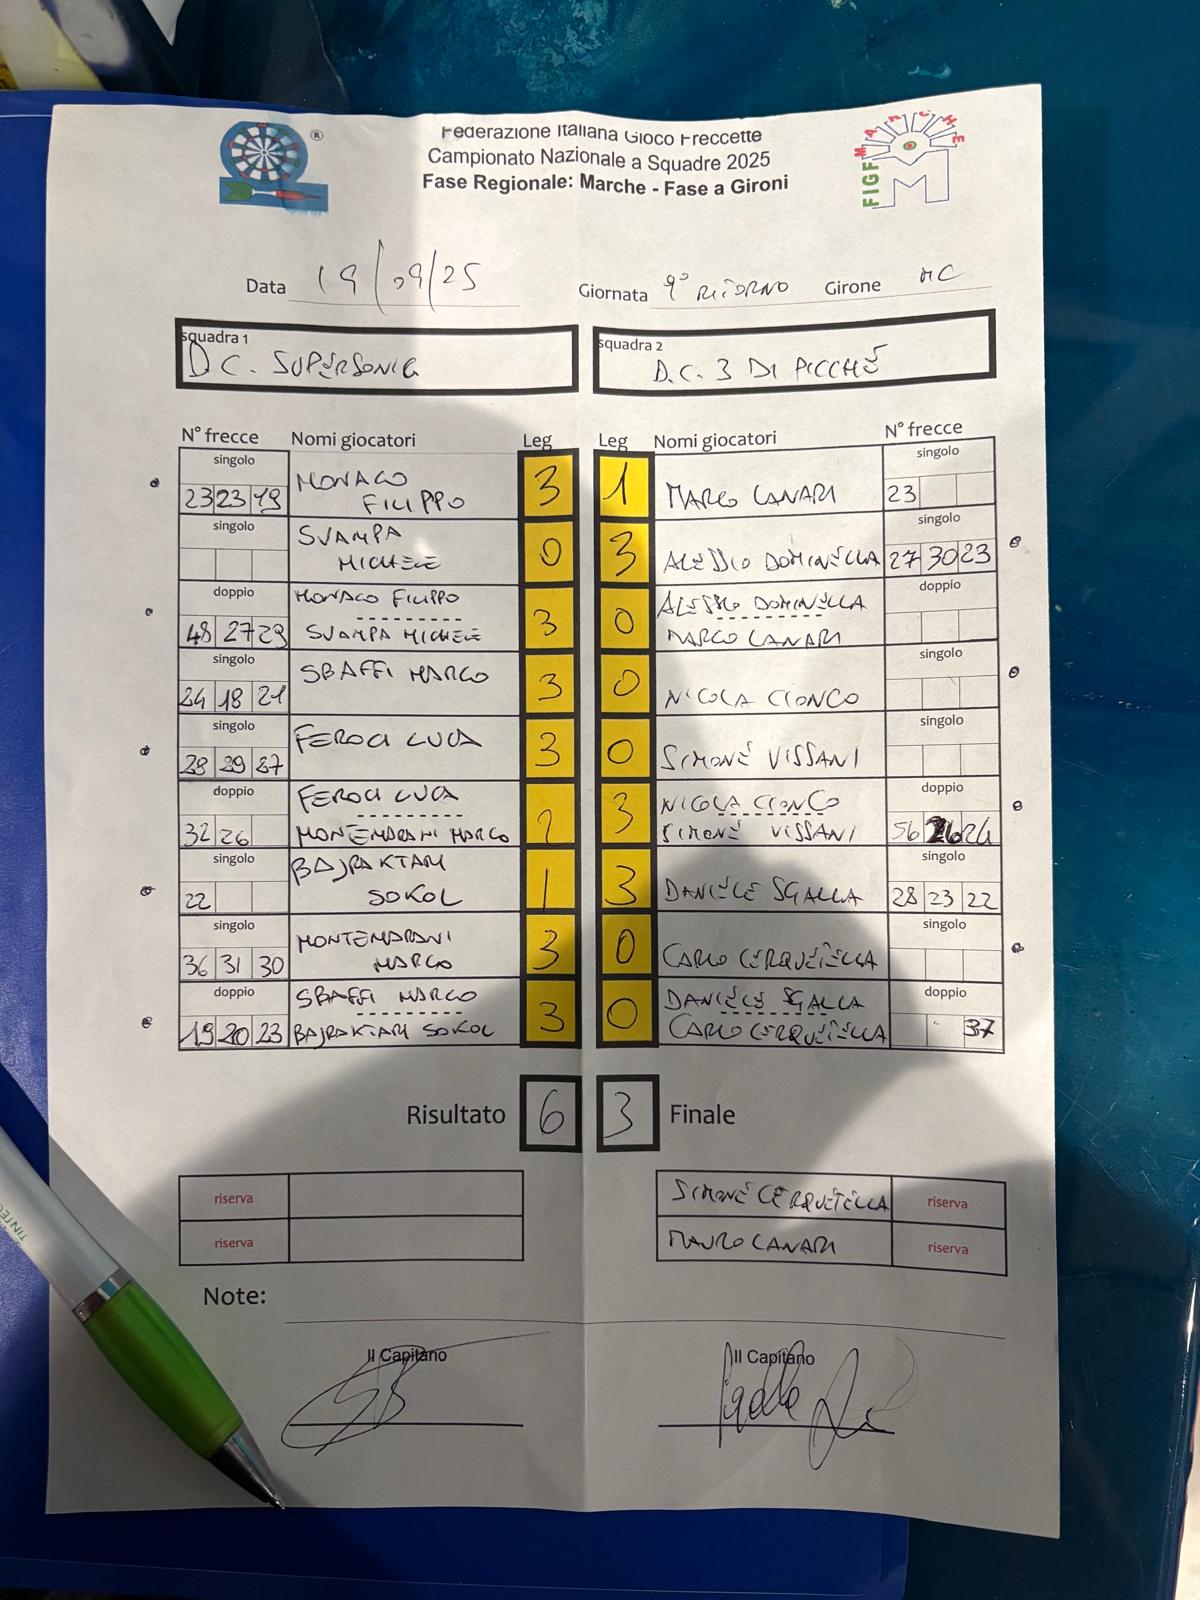 Federazione Italiana Gioco Freccette
Campionato Nazionale a Squadre 2025
Fase Regionale: Marche - Fase a Gironi
®
MARCHE
FIGF
M
Data 19/09/25 Giornata 9° RITORNO Girone MC
squadra 1 squadra 2
D.C. SUPERSONIC D.C. 3 DI PICCHE
N° frecce Nomi giocatori Leg Leg Nomi giocatori N° frecce
singolo MONACO singolo
23 23 19 FILIPPO 3 1 MARCO CANARI 23
singolo SVAMPA singolo
MICHELE 0 3 ALESSIO DOMINELLA 27 30 23
doppio MONACO FILIPPO ALESSIO DOMINELLA doppio
48 27 29 SVAMPA MICHELE 3 0 MARCO CANARI
singolo SBAFFI MARCO singolo
24 18 21 3 0 NICOLA CIONCO
singolo FEROCI LUCA singolo
28 29 27 3 0 SIMONE VISSANI
doppio FEROCI LUCA NICOLA CIONCO doppio
32 26 MONTEMARANI MARCO 2 3 SIMONE VISSANI 56 26 24
singolo BAJRAKTARI singolo
22 SOKOL 1 3 DANIELE SGALLA 28 23 22
singolo MONTEMARANI singolo
36 31 30 MARCO 3 0 CARLO CERQUETELLA
doppio SBAFFI MARCO DANIELE SGALLA doppio
19 20 23 BAJRAKTARI SOKOL 3 0 CARLO CERQUETELLA 37
Risultato 6 3 Finale
riserva SIMONE CERQUETELLA riserva
riserva MAURO CANARI riserva
Note:
Il Capitano Il Capitano